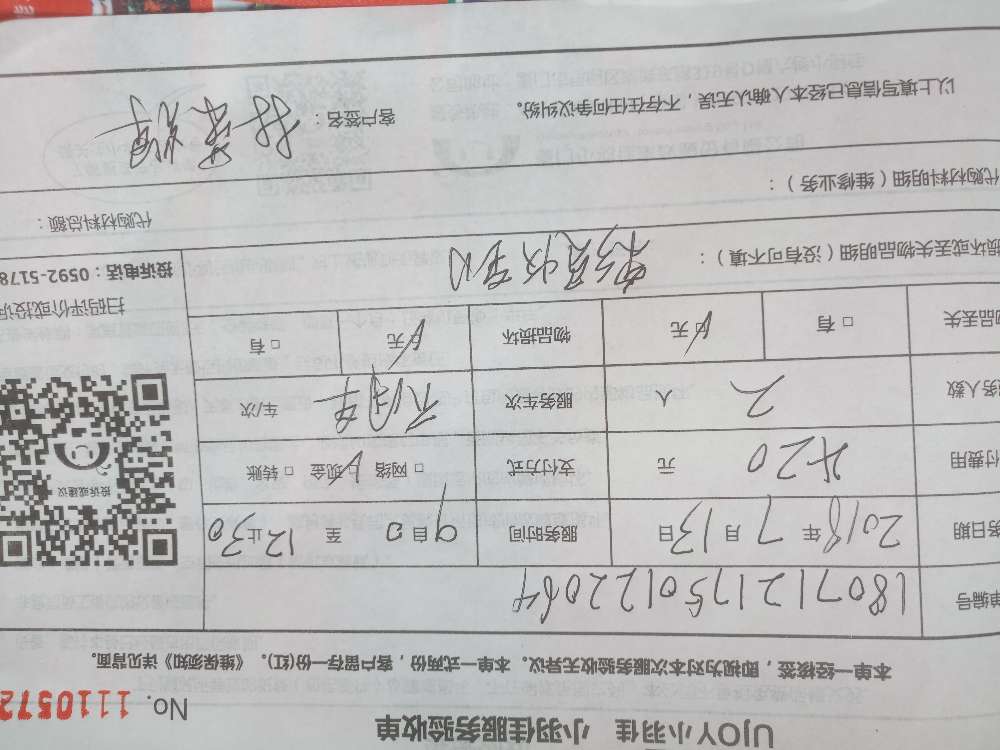 UJOY小羽佳 小羽佳服务验收单
No. 1110572
本单一经核签，即视为对本次服务验收无异议。本单一式两份，客户留存一份(红)。《维保须知》详见背面。
单编号 180712175012206
务日期 2018年7月13日 服务时间 9自0至12止30
付费用 420元 支付方式 □网络 □现金 □转账
务人数 2人 服务车次 车/次
物品丢失 □有 □无 物品损坏 □无 □有
扫码评价或投诉
投诉或建议
投诉电话：0592-5178
损坏或丢失物品明细（没有可不填）：
代购材料明细（维修业务）： 代购材料总额：
以上填写信息已经本人确认无误，不存在任何争议纠纷。 客户签名：